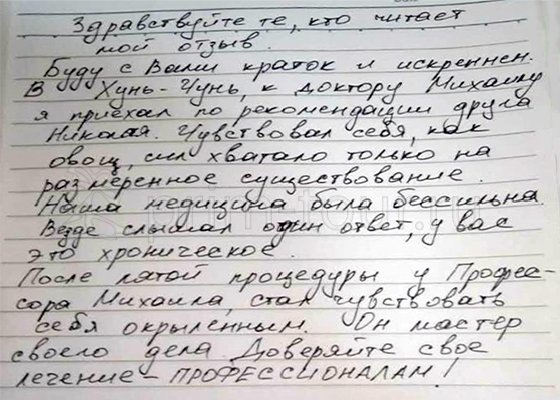 Здравствуйте те, кто читает
мой отзыв.
Буду с Вами краток и искренен.
В Хунь-Чунь, к доктору Михаилу
я приехал по рекомендации друга
Николая. Чувствовал себя, как
овощ, сил хватало только на
размеренное существование.
Наша медицина была бессильна.
Везде слышал один ответ, у вас
это хроническое.
После пятой процедуры у Профес-
сора Михаила, стал чувствовать
себя окрылённым. Он мастер
своего дела. Доверяйте свое
лечение - ПРОФЕССИОНАЛАМ!